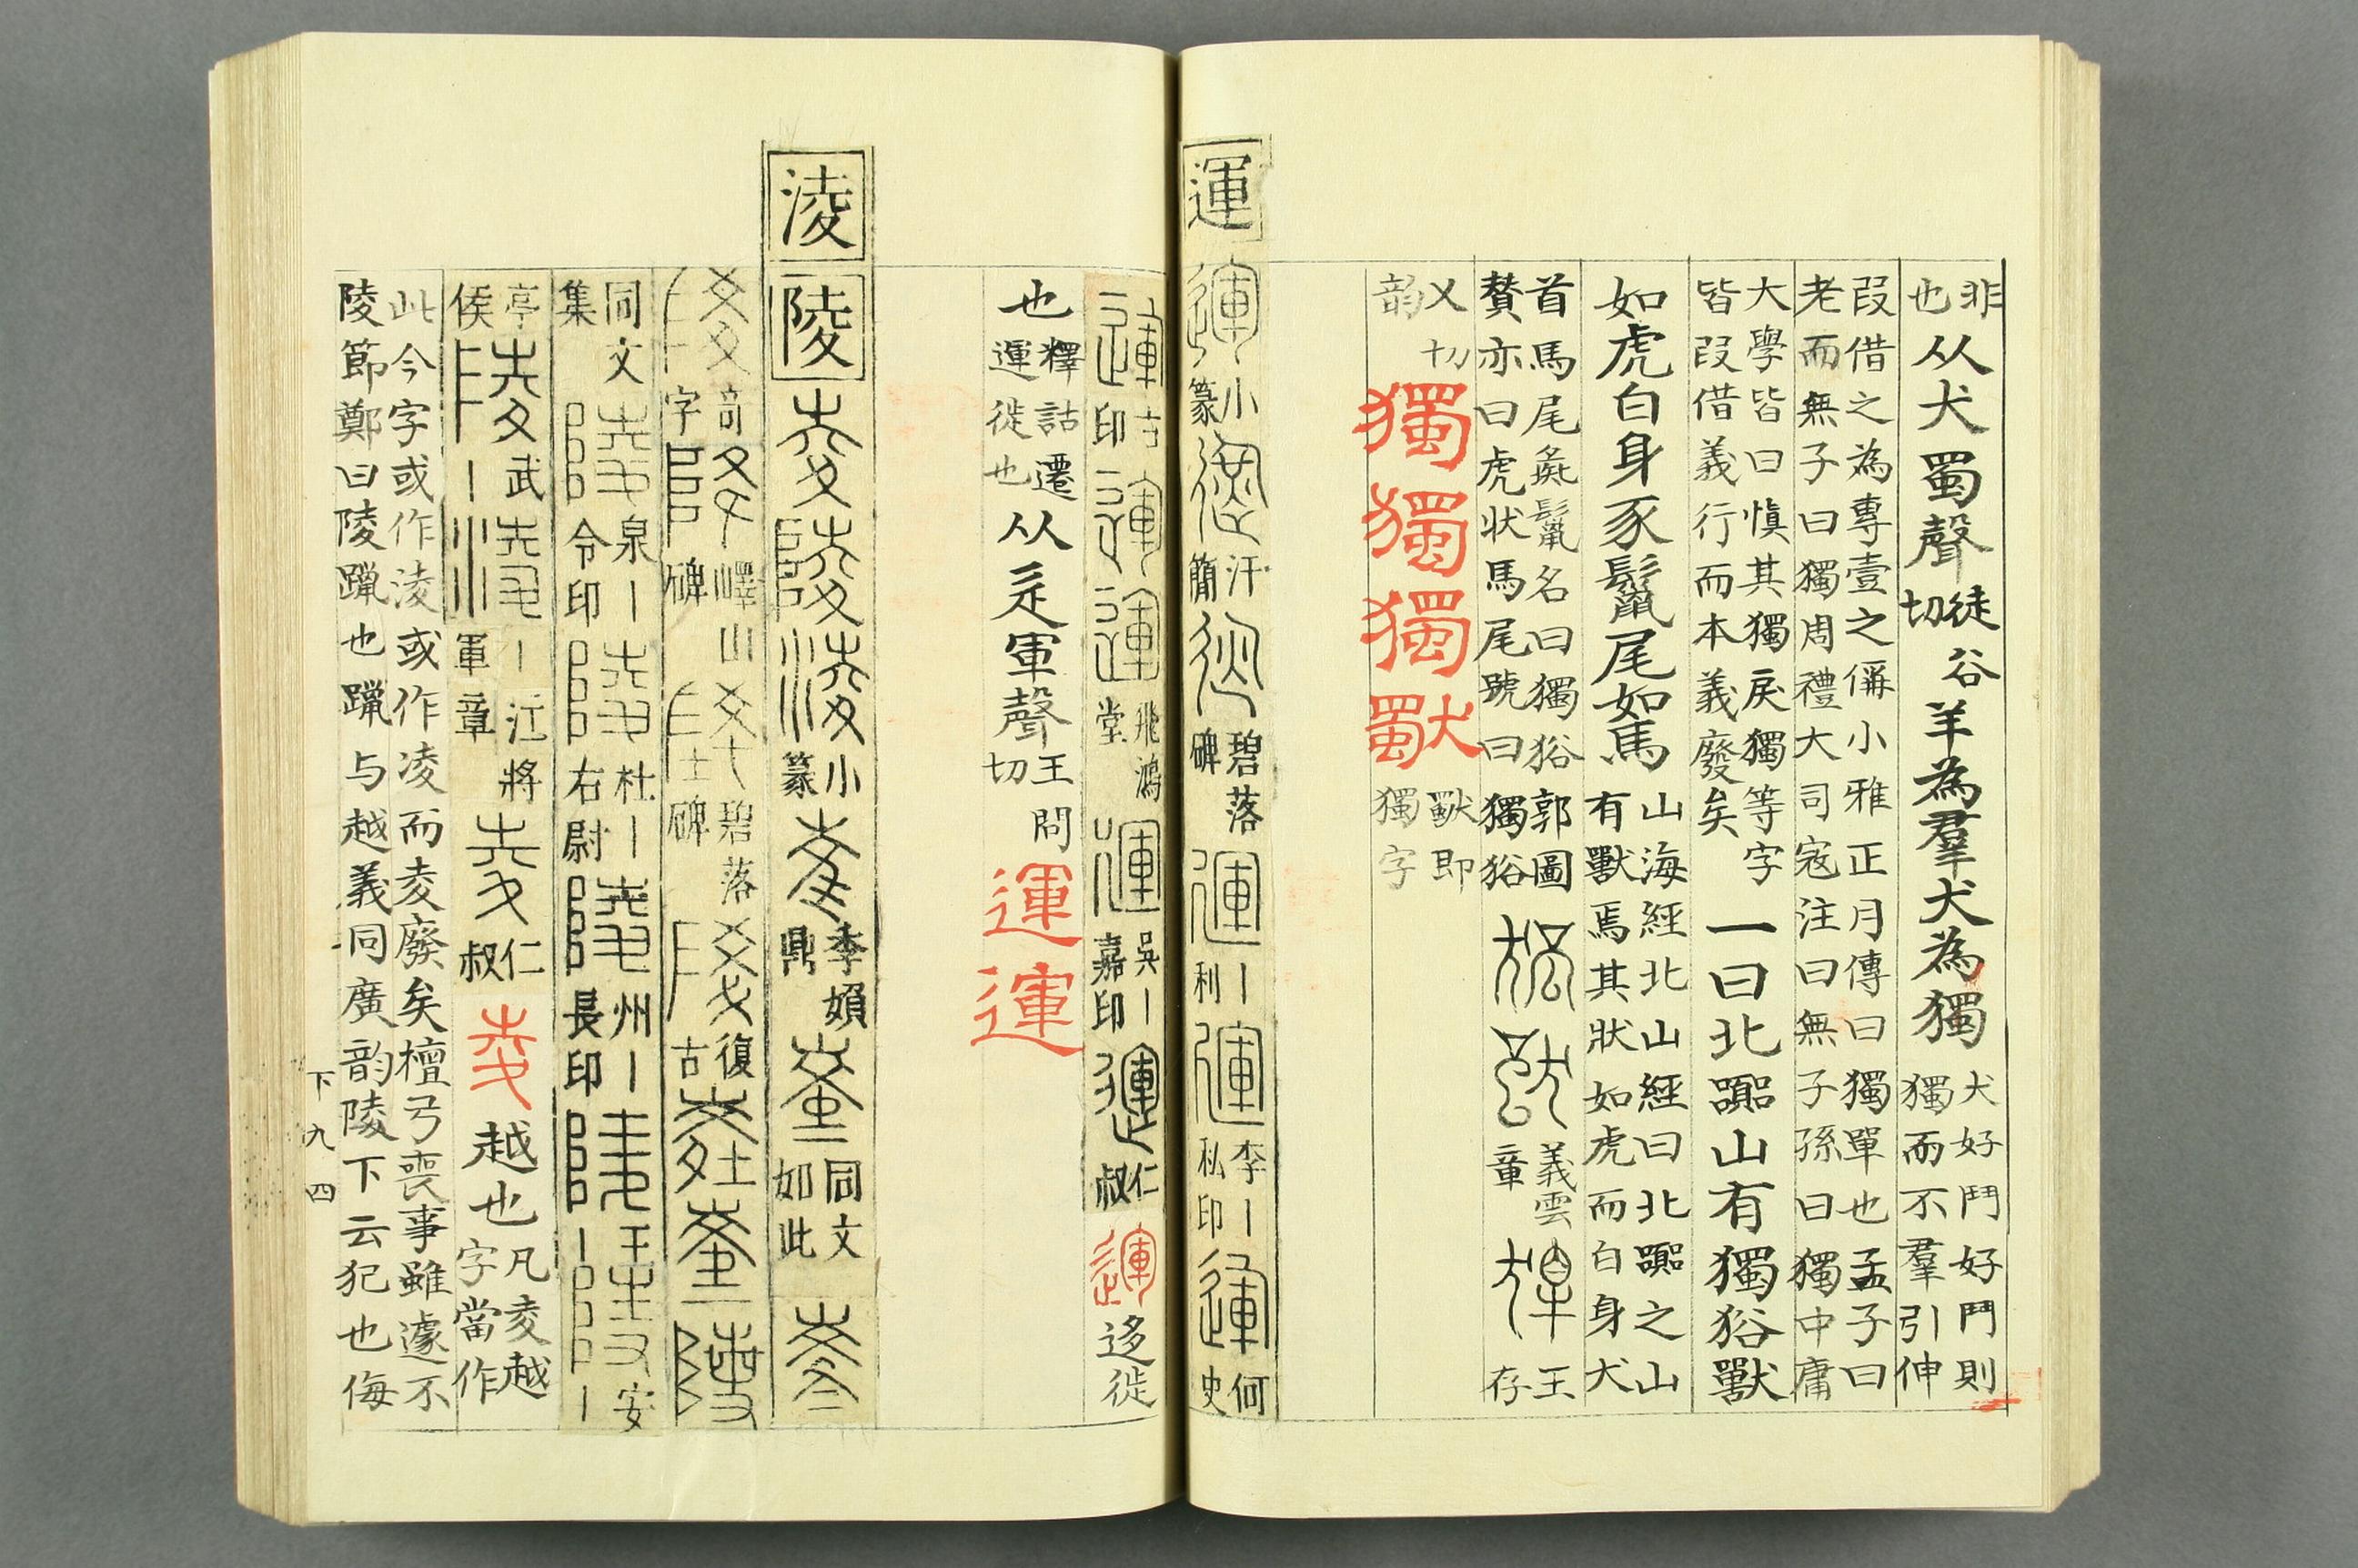 非也从犬蜀聲徒谷切羊為羣犬為獨犬好鬥好鬥則獨而不羣引伸
叚借之為專壹之偁小雅正月傳曰獨單也孟子曰老而無子曰獨周禮大司寇注曰無子孫曰獨中庸
大學皆曰慎其獨戾獨等字皆叚借義行而本義廢矣一曰北嚻山有獨𤞞獸
如虎白身豕鬣尾如馬山海經北山經曰北嚻之山有獸焉其狀如虎而白身犬
首馬尾彘鬣名曰獨𤞞郭圖贊亦曰虎狀馬尾號曰獨𤞞義雲章王存
乂切韵獨獨獨獸獸即獨字
運運小篆汗簡碧落碑運丨利運李丨私印運何史
運印運運飛鴻堂運吳丨嘉印運仁叔運迻徙
也釋詁遷運徙也从辵軍聲王問切運運
淩陵夌陵淩小篆夌季嬶鼎同文如此
奇字嶧山碑碧落碑復古
同文集泉丨令印杜丨右尉州丨長印王丨安丨
亭侯武丨江將軍章夌仁叔夌越也凡夌越字當作
此今字或作淩或作凌而夌廢矣檀弓喪事雖遽不
陵節鄭曰陵躐也躐与越義同廣韵陵下云犯也侮
下九四